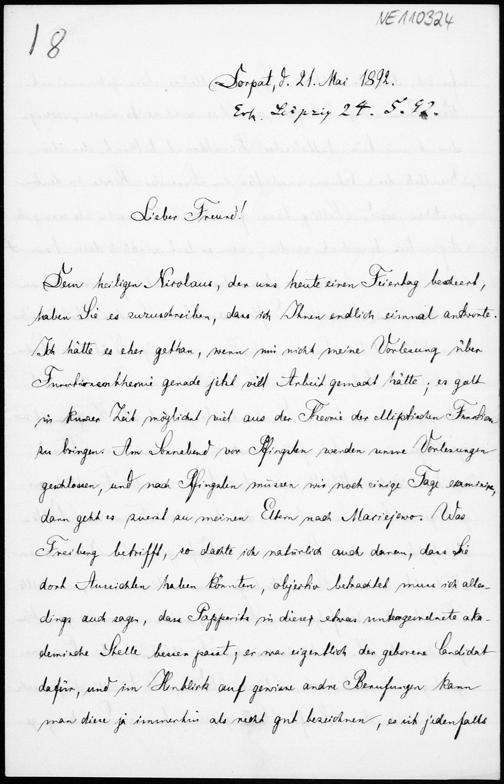 18
NE110324
Dorpat, d. 21. Mai 1892.
Erh. Leipzig 24. 5. 92.
Lieber Freund!
Dem heiligen Nicolaus, der uns heute einen Feiertag bescheert,
haben Sie es zuzuschreiben, dass ich Ihnen endlich einmal antworte.
Ich hätte es eher gethan, wenn mir nicht meine Vorlesung über
Functionentheorie gerade jetzt viel Arbeit gemacht hätte; es galt
in kurzer Zeit möglichst viel aus der Theorie der elliptischen Function
zu bringen. Am Sonnabend vor Pfingsten werden unsre Vorlesungen
geschlossen, und nach Pfingsten müssen wir noch einige Tage examiniren,
dann geht es zuerst zu meinen Eltern nach Maciejewo. Was
Freiberg betrifft, so dachte ich natürlich auch daran, dass Sie
dort Aussichten haben könnten, objectiv betrachtet muss ich aller-
dings auch sagen, dass Papperitz in diese etwas untergeordnete aka-
demische Stelle besser passt; er war eigentlich der geborene Candidat
dafür, und im Hinblick auf gewisse andre Berufungen kann
man diese ja immerhin als recht gut bezeichnen, es ist jedenfalls